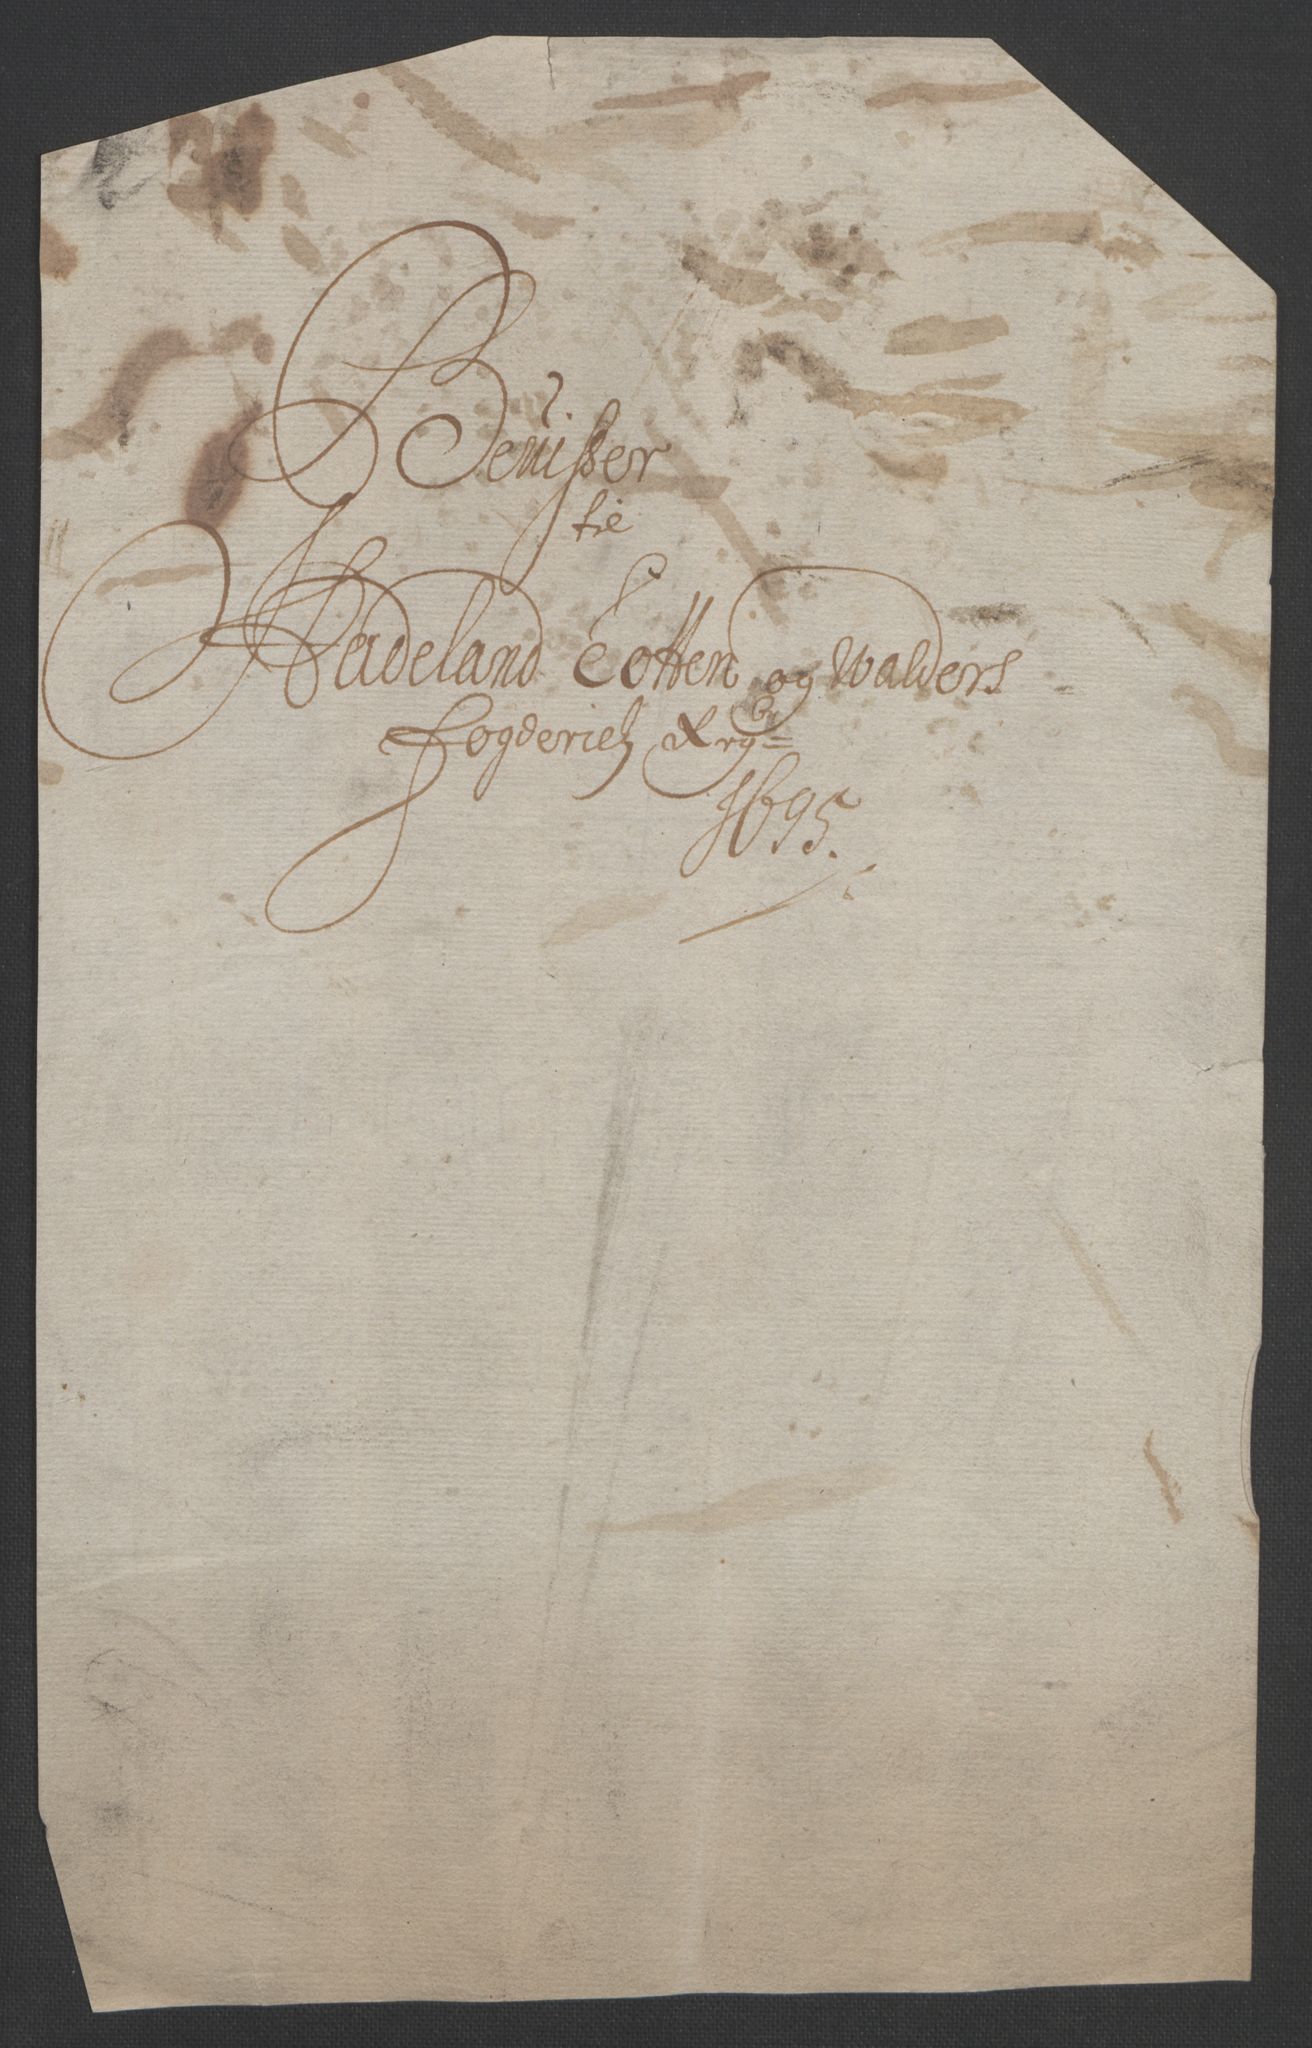 Beviißer
till
Hadeland Totten og Walders
Fogderies Regr
1695.